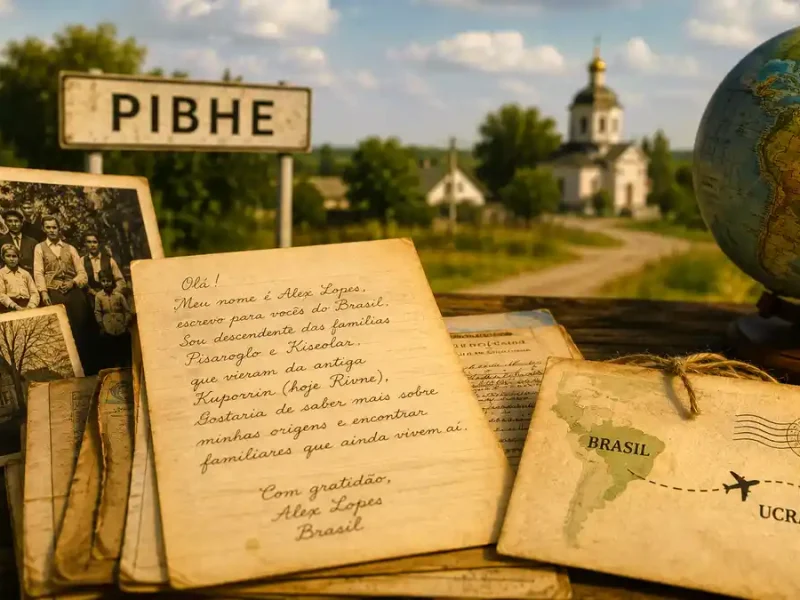 РІВНЕ
Olá!
Meu nome é Alex Lopes,
escrevo para vocês do Brasil.
Sou descendente das famílias
Pisaroglo e Kiseolar,
que vieram da antiga
Kuporrin (hoje Rivne),
Gostaria de saber mais sobre
minhas origens e encontrar
familiares que ainda vivem aí.
Com gratidão,
Alex Lopes
Brasil
BRASIL
UCRA